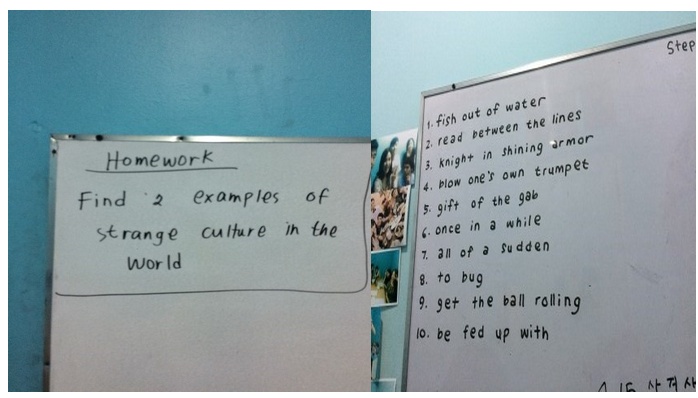 Homework
Find 2 examples of
strange culture in the
world
Step
1. fish out of water
2. read between the lines
3. knight in shining armor
4. blow one's own trumpet
5. gift of the gab
6. once in a while
7. all of a sudden
8. to bug
9. get the ball rolling
10. be fed up with